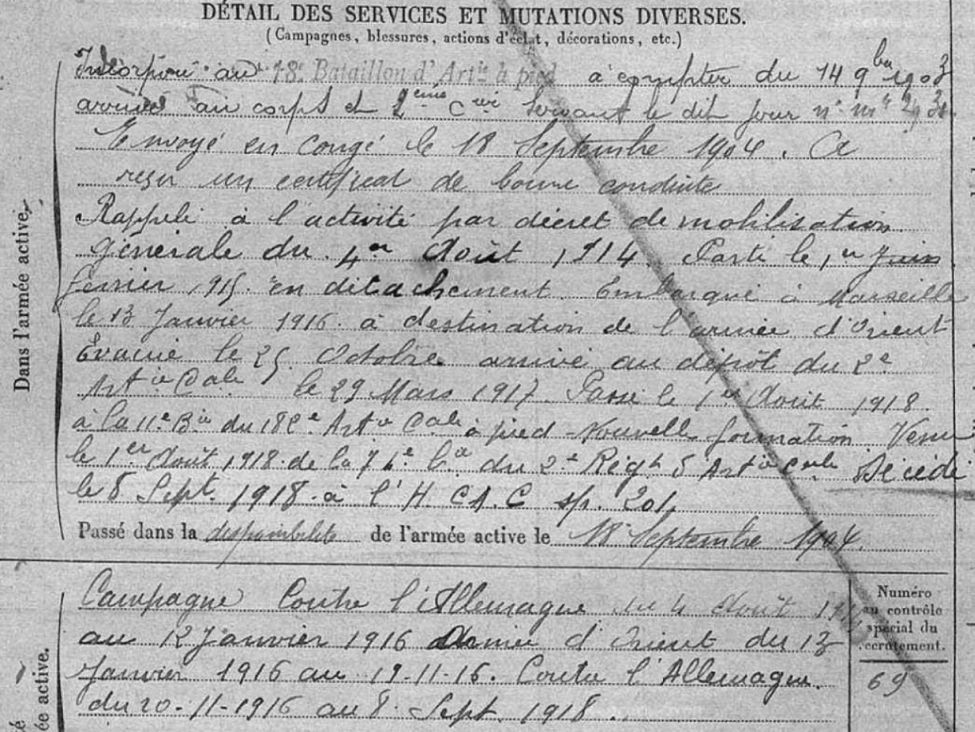 DÉTAIL DES SERVICES ET MUTATIONS DIVERSES.
(Campagnes, blessures, actions d'éclat, décorations, etc.)
Incorporé au 18e Bataillon d'Artie à pied à compter du 14 9bre 1903
arrivé au corps et 2ème cer suivant le dit jour no mle
Envoyé en congé le 18 Septembre 1904. A
reçu un certificat de bonne conduite
Rappelé à l'activité par décret de mobilisation
générale du 4er Août 1914. Parti le 1er
février 1915. en détachement. Embarqué à Marseille
le 13 Janvier 1916. à destination de l'armée d'Orient
Évacué le 25 Octobre arrivé au dépôt du 2e
Artie Cale le 29 Mars 1917. Passé le 1er Août 1918.
à la 11e Bie du 182e Artie Cale à pied - Nouvelle formation Venu
le 1er Août 1918. de la 76e du 2e Régt d'Artie Cale Décédé
le 8 Sept. 1918. à l'H. C.A.C sp. 201.
Passé dans la disponibilité de l'armée active le 18 Septembre 1904.
Dans l'armée active.
Campagne Contre l'Allemagne du 4 Août 1914
au 12 Janvier 1916 Armée d'Orient du 13
Janvier 1916 au 19-11-16. Contre l'Allemagne.
du 20-11-1916 au 8 Sept. 1918.
Numéro
au contrôle
spécial du
recrutement.
69
ée active.